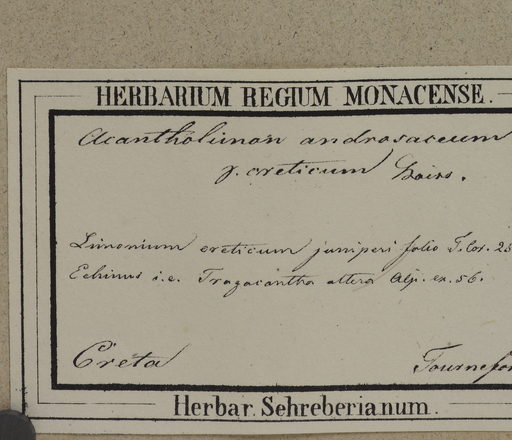 HERBARIUM REGIUM MONACENSE.
Acantholimon androsaceum
γ. creticum Boiss.
Limonium creticum juniperi folio T. Cor. 25
Echinus i.e. Tragacantha altera Alp. ex. 56.
Creta Tournefor
Herbar. Schreberianum.